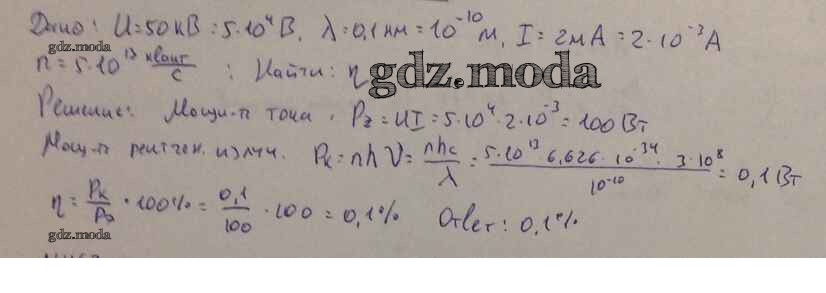 Дано: U = 50 кВ = 5·10⁴ В, λ = 0,1 нм = 10⁻¹⁰ м, I = 2 мА = 2·10⁻³ А
gdz.moda
n = 5·10¹³ квант/с ; Найти: η
gdz.moda
Решение: Мощн-ть тока. Pэ = UI = 5·10⁴·2·10⁻³ = 100 Вт
Мощ-ть рентген. излуч. Pк = nhν = nhc/λ = 5·10¹³·6,626·10⁻³⁴·3·10⁸/10⁻¹⁰ = 0,1 Вт
η = Pк/Pэ · 100% = 0,1/100 · 100 = 0,1% Ответ: 0,1%
gdz.moda